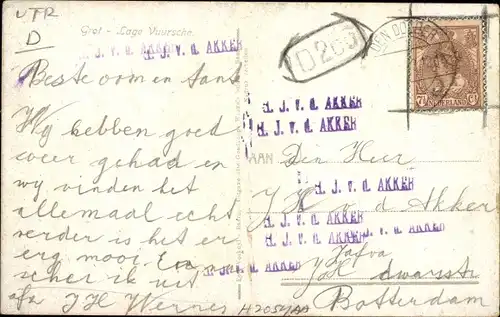 UTR
D
Grot - Lage Vuursche.
H. J. V. d. AKKER
H. J. V. d. AKKER
D 263
DEN DOLDER
NEDERLAND
7½ Ct
Beste oom en Tante
Wy hebben goed
weer gehad en
wy vinden het
allemaal echt
verder is het er
erg mooi. En
scher ik uit
JH Werner
H. J. V. d. AKKER
H. J. V. d. AKKER
AAN
Den Heer
H. J. V. d. AKKER
J H v. d. Akker
H. J. V. d. AKKER
H. J. V. d. AKKER
J. V. d. AKKER
J. V. d. AKKER
dwarsstr
Rotterdam
H2054AA